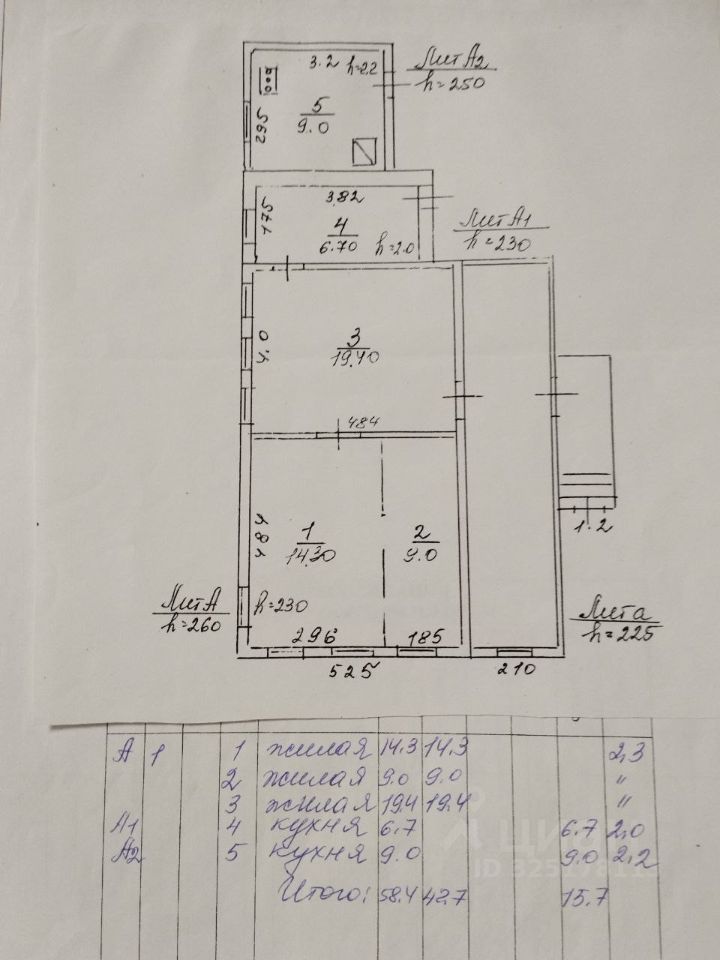 3.2 h=2.2
Лит А2
h=250
5
9.0
295
3.82
175
4
6.70 h=2.0
Лит А1
h=230
3
19.40
4.0
484
1
14.30
2
9.0
484
Лит А
h=260
h=230
Лит а
h=225
1.2
296 185
525 210
А 1 1 жилая 14,3 14,3 2,3
2 жилая 9.0 9.0 "
3 жилая 19,4 19,4 "
А1 4 кухня 6.7 6.7 2,0
А2 5 кухня 9.0 9.0 2,2
Итого: 58.4 42.7 15.7